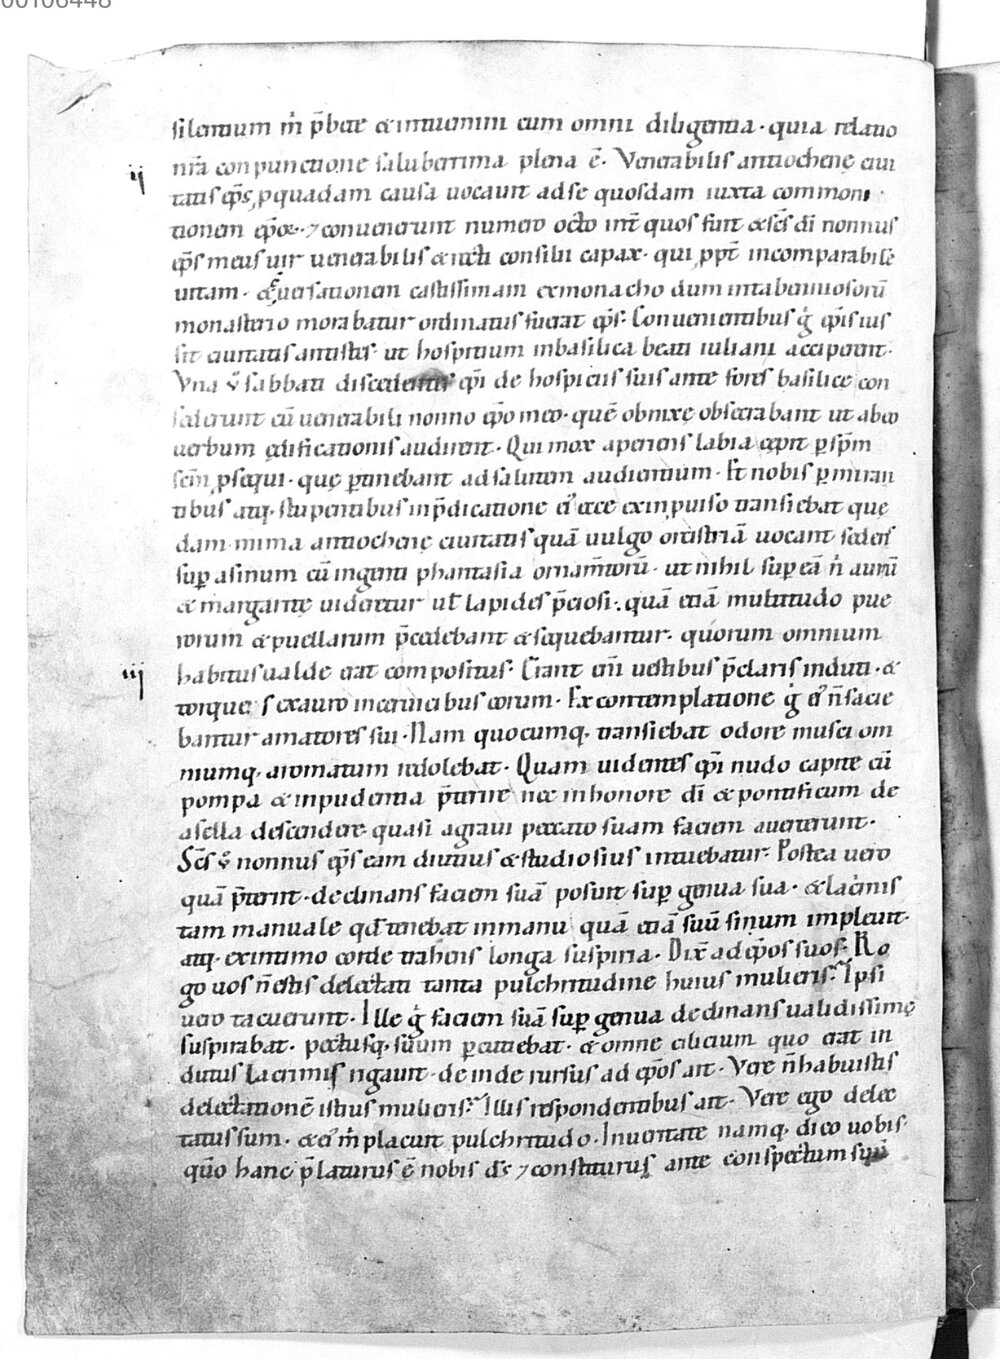 00106448
silentium ṁ p̄bete & intuemini cum omni diligentia · quia relatio
nr̄a conpunctione saluberrima plena ē · Venerabilis antiochenę ciui
ij
tatis ep̄s, p quadam causa uocauit ad se quosdam iuxta commoni
tionem ep̄os · ⁊ conuenerunt numero octo int̄ quos fuit & sc̄s dī nonnus
ep̄s meus uir uenerabilis & recti consilii capax · qui ꝓpt̄ incomparabilē
uitam · & ꝯuersationem castissimam ex monacho dum in tabenniosorū
monasterio morabatur ordinatus fuerat ep̄s · Conuenientibus g̊ ep̄is ius
sit ciuitatis antistes · ut hospitium in basilica beati iuliani acciperent ·
Vna v̊ sabbati discedentes ep̄i de hospiciis suis ante fores basilicę con
sederunt cū uenerabili nonno ep̄o meo · quē obnixę obsecrabant ut ab eo
uerbum ędificationis audirent · Qui mox aperiens labia cępit ꝑ sp̄m
sc̄m ꝓsequi · quę ꝑtinebant ad salutem audientium · Et nobis ꝑmiran
tibus atq; stupentibus in p̄dicatione ei᾽ ecce ex inpuiso transiebat quę
dam mima antiochenę ciuitatis quā uulgo orcistriā uocant sedens
suꝑ asinum cū ingenti phantasia ornam̄torū · ut nihil suꝑ eā n̊ aurū
& margaritę uideretur ut̄ lapides p̄ciosi · quā etiā multitudo pue
rorum & puellarum p̄cedebant & sequebantur · quorum omnium
iij
habitus ualde erat compositus · Erant enī uestibus p̄claris induti · &
torques ex auro in ceruicibus eorum · Ex contemplatione g̊ ei᾽ n̄ sacie
bantur amatores sui · Nam quocumq; transiebat odore musci om
niumq; aromatum redolebat · Quam uidentes ep̄i nudo capite cū
pompa & inpudentia p̄terire nec in honore dī & pontificum de
asella descendere quasi a graui peccato suam faciem auerterunt ·
Sc̄s v̊ nonnus ep̄s eam diutius & studiosius intuebatur · Postea uero
quā p̄teriit · declinans faciem suā posuit suꝑ genua sua · & lacrimis
tam manuale qd̄ tenebat in manu quā etiā suū sinum impleuit ·
atq; ex intimo corde trahens longa suspiria · Dix̄ ad ep̄os suos · Ro
go uos n̄ estis delectati tanta pulchritudine huius mulieris? Ipsi
uero tacuerunt · Ille g̊ faciem suā suꝑ genua declinans ualidissimę
suspirabat · pectusq; suum ꝑcutiebat · & omne cilicium quo erat in
dutus lacrimis rigauit · deinde rursus ad ep̄os ait · Vere n̄ habuistis
delectationē istius mulieris? Illis respondentibus ait · Vere ego delec
tatus sum · & ei᾽ m̊ placuit pulchritudo · In ueritate namq; dico uobis ·
qm̄o hanc p̄laturus ē nobis ds̄ ⁊ constiturus ante conspectum suū